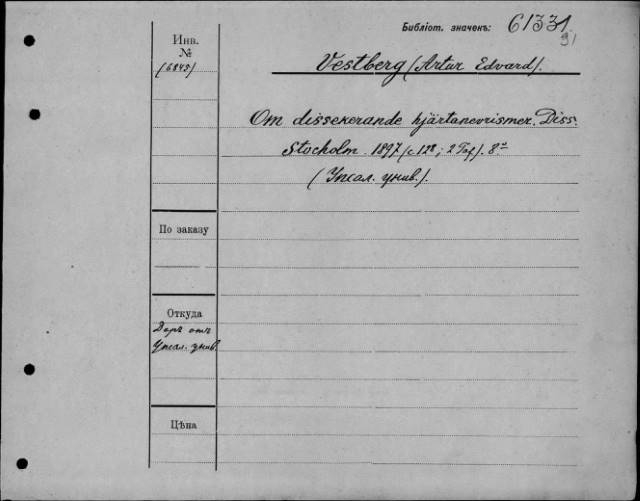 Библіот. значекъ: 61331
91
Инв.
№
(6845)
Vestberg (Artur Edvard).
Om dissekerande hjärtanevrismer. Diss.
Stocholm. 1897 (c. 122; 2 Taf). 8º
(Упсал. унив.).
По заказу
Откуда
Даръ отъ
Упсал. унив.
Цѣна